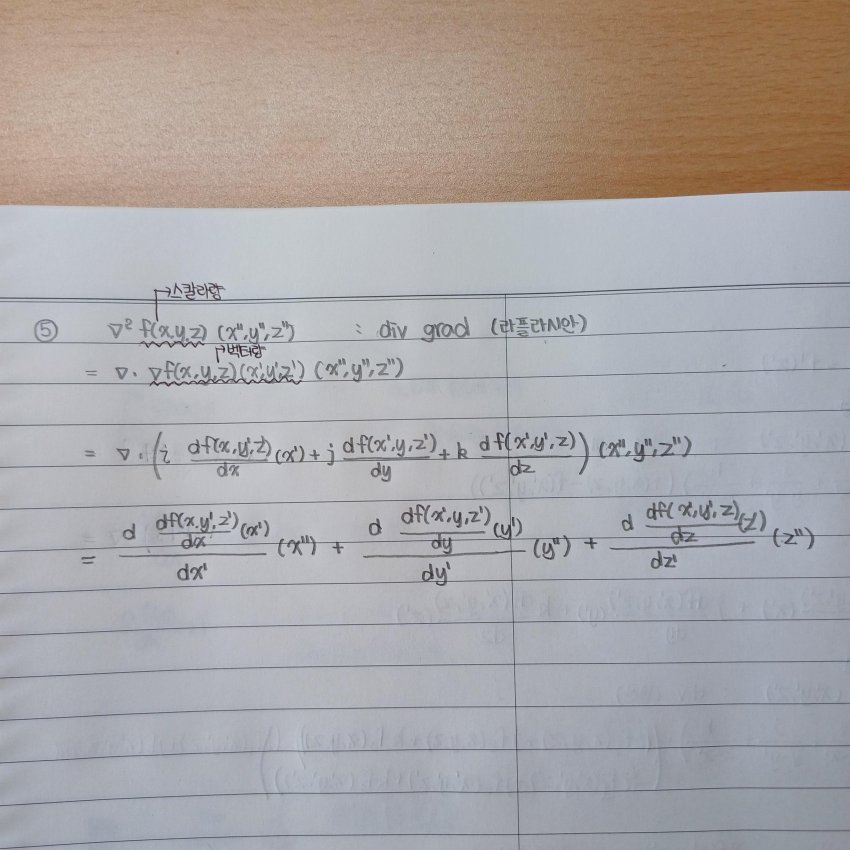 →스칼라량
⑤ ∇² f(x,y,z) (x'',y'',z'') : div grad (라플라시안)
→벡터량
= ∇· ∇f(x,y,z)(x',y',z') (x'',y'',z'')
= ∇· (i df(x,y',z')/dx (x') + j df(x',y,z')/dy + k df(x',y',z)/dz) (x'',y'',z'')
= d df(x,y',z')/dx (x') / dx' (x'') + d df(x',y,z')/dy (y') / dy' (y'') + d df(x',y',z)/dz (z') / dz' (z'')